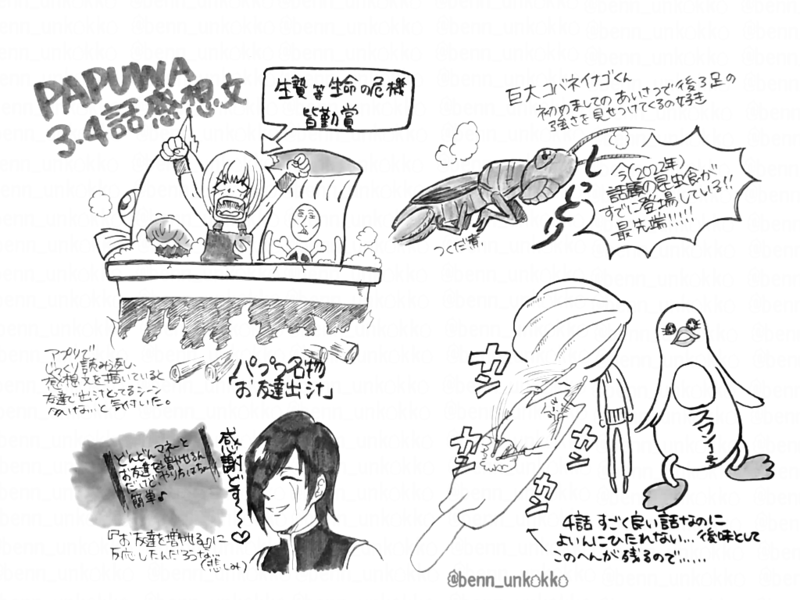 PAPUWA
3・4話感想文
生贄等生命の危機
皆勤賞
アプリで
じっくり読み返し
感想文を描いていると
友達で出汁とってるシーン
多いな…と気付いた。
「パプワ名物
お友達出汁」
どんどんマネーと
お友達を増やせるん
だけど、やり方はちょ
簡単♪
『お友達を増やせる』に
反応したんだろうな…
(悲しみ)
感謝どす〜〜♡
巨大コバネイナゴくん
初めましてのあいさつで後ろ足の
強さを見せつけてくるの好き
しっとり
つくだ煮
今(2022年)
話題の昆虫食が
すでに登場している!!
最先端!!!!!
カン
カン
カン
カン
カン
スワン1号
4話 すごく良い話なのに
よいんにひたれない…後味として
このへんが残るので……
@benn_unkokko